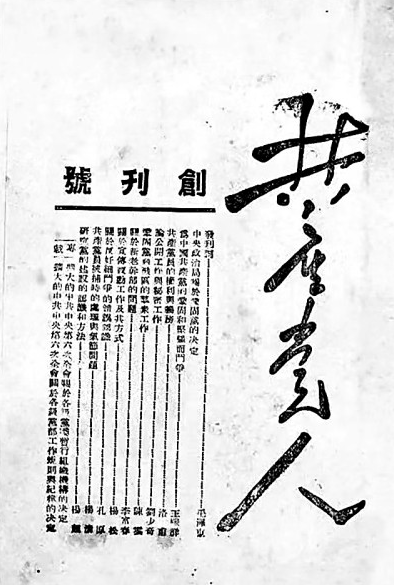 共产党人
創刊號
發刊詞 毛澤東
中央政治局關於鞏固黨的決定
為中國共產黨的鞏固和堅強而鬥爭 王稼祥
共產黨員的權利與義務 洛甫
論公開工作與秘密工作 劉少奇
鞏固黨與戰區的羣眾工作 陳雲
關於新老幹部的問題 李富春
關於宣傳鼓動工作及其方式 楊松
關於反奸細鬥爭的 孔原
共產黨員被捕時的處理與氣節問題 楊
研究黨的建設的認識和方法 楊
擴大的中共中央第六次全會關於各級黨委暫行組織機構的決定
擴大的中共中央第六次全會關於各級黨部工作規則與紀律的決定